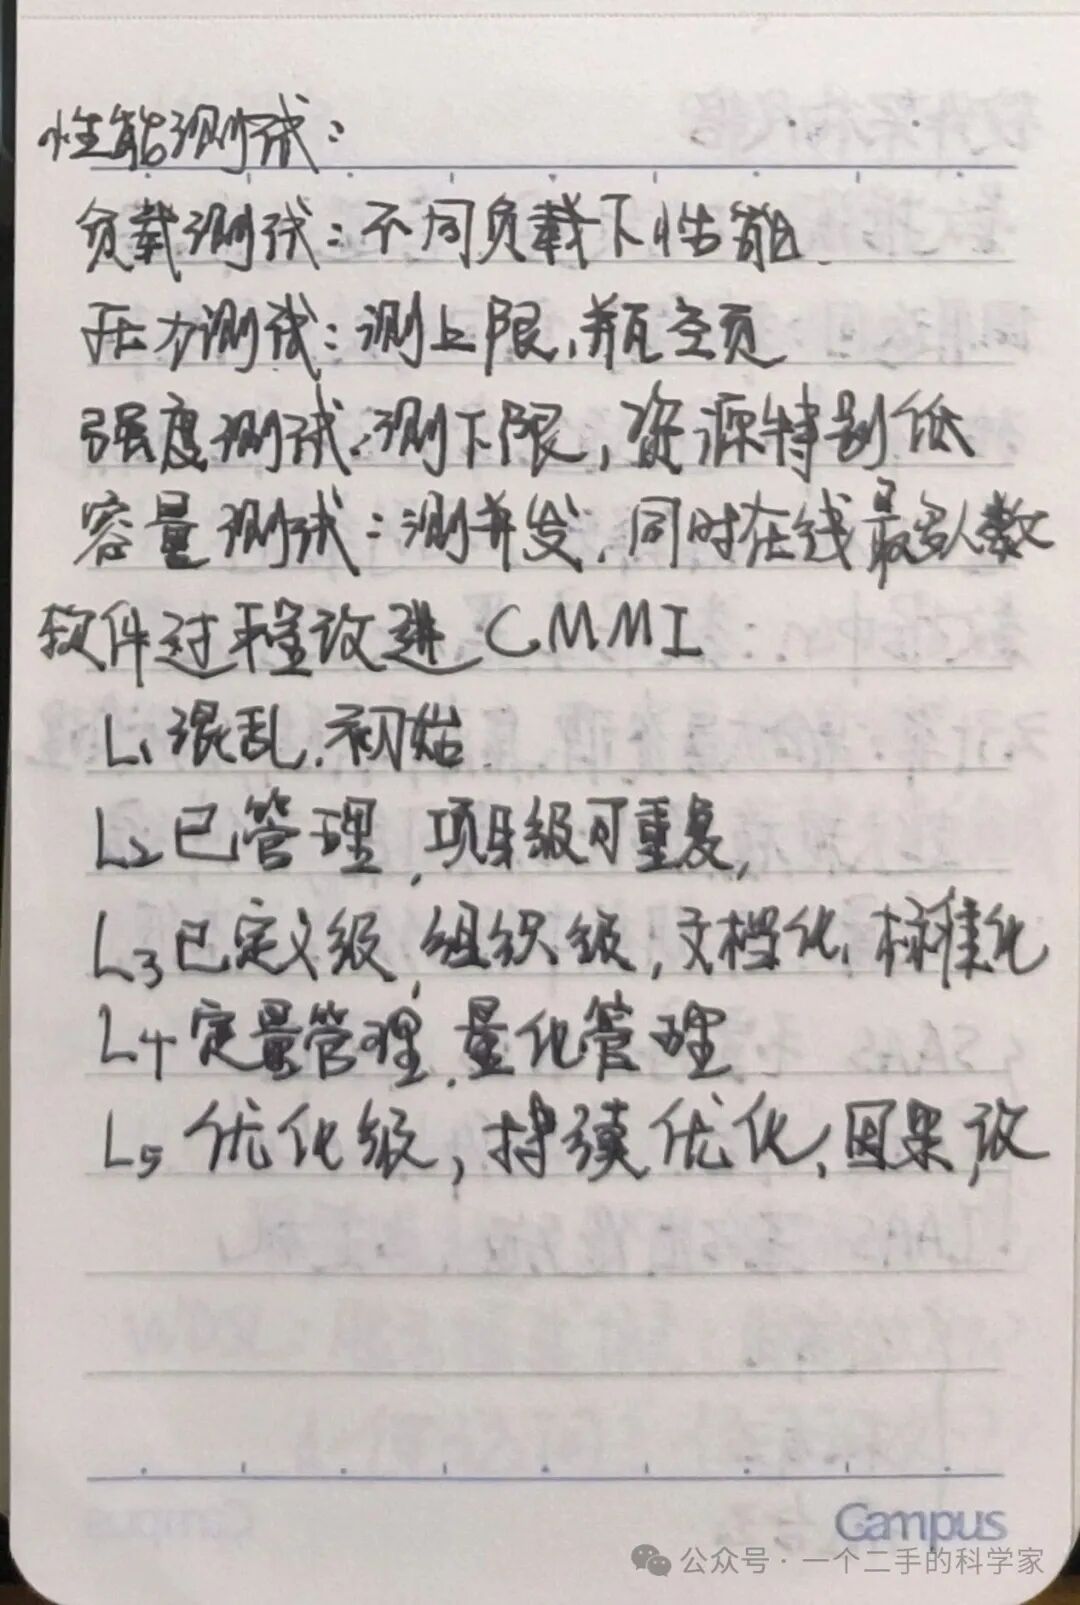 性能测试：
负载测试：不同负载下性能
压力测试：测上限、瓶空页
强度测试：测下限，资源特别低
容量测试：测并发，同时在线最多人数
软件过程改进 CMMI
L1 混乱，初始
L2 已管理，项目级可重复，
L3 已定义级，组织级，文档化、标准化
L4 定量管理，量化管理
L5 优化级，持续优化，因果，改
Campus
公众号·一个二手的科学家